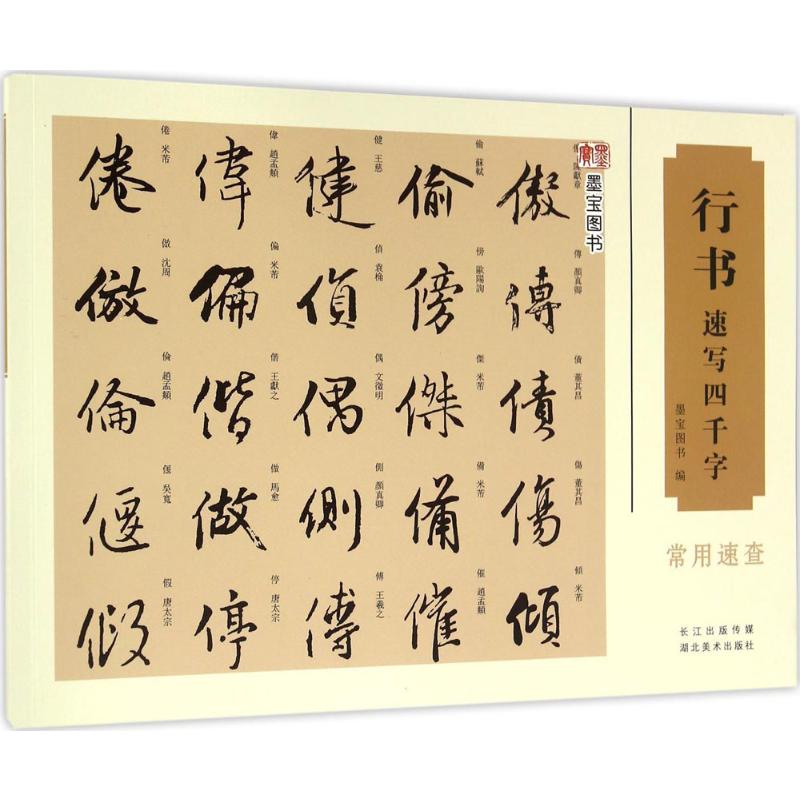 行书
速写四千字
墨宝图书 编
常用速查
长江出版传媒
湖北美术出版社
墨宝图书
倦
倦 米芾
倣
倣 沈周
倫
倫 趙孟頫
偃
偃 吳寬
假
假 唐太宗
偉
偉 趙孟頫
偏
偏 米芾
偕
偕 王獻之
做
做 馬愈
停
停 唐太宗
健
健 王慈
偵
偵 袁桷
偶
偶 文徵明
側
側 顏真卿
傅
傅 王羲之
偷
偷 蘇軾
傍
傍 歐陽詢
傑
傑 米芾
備
備 米芾
催
催 趙孟頫
傲
獻章
傳
傳 顏真卿
債
債 董其昌
傷
傷 董其昌
傾
傾 米芾